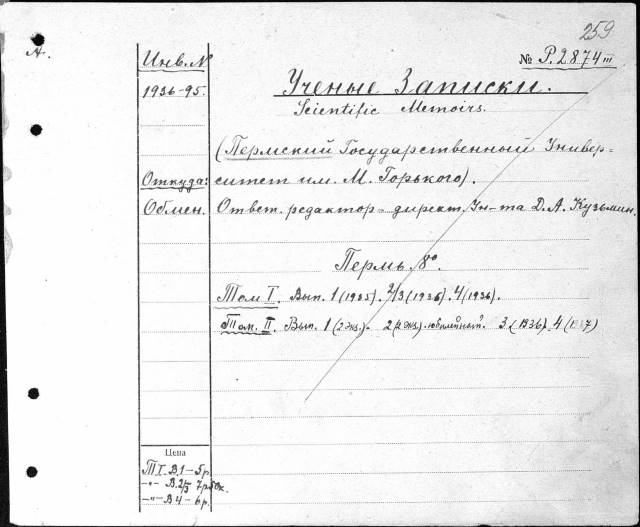 259
А.
Инв. N
№ P.2874 III
1936-95.
Ученые Записки.
Scientific Memoirs.
(Пермский Государственный Универ=
Откуда:
ситет им. М. Горького).
Обмен.
Ответ. редактор = директ. Ун-та Д. А. Кузьмин.
Пермь. 8°.
Том I. Вып. 1 (1935). 2/3 (1936). 4 (1936).
Том. II. Вып. 1 (2 экз.). 2 (2 экз.). юбилейный. 3. (1936). 4 (1937)
Цена
Т I. В. 1 - 5 р.
-"- В. 2/3 7 р. 50к.
-"- В 4 - 6 р.